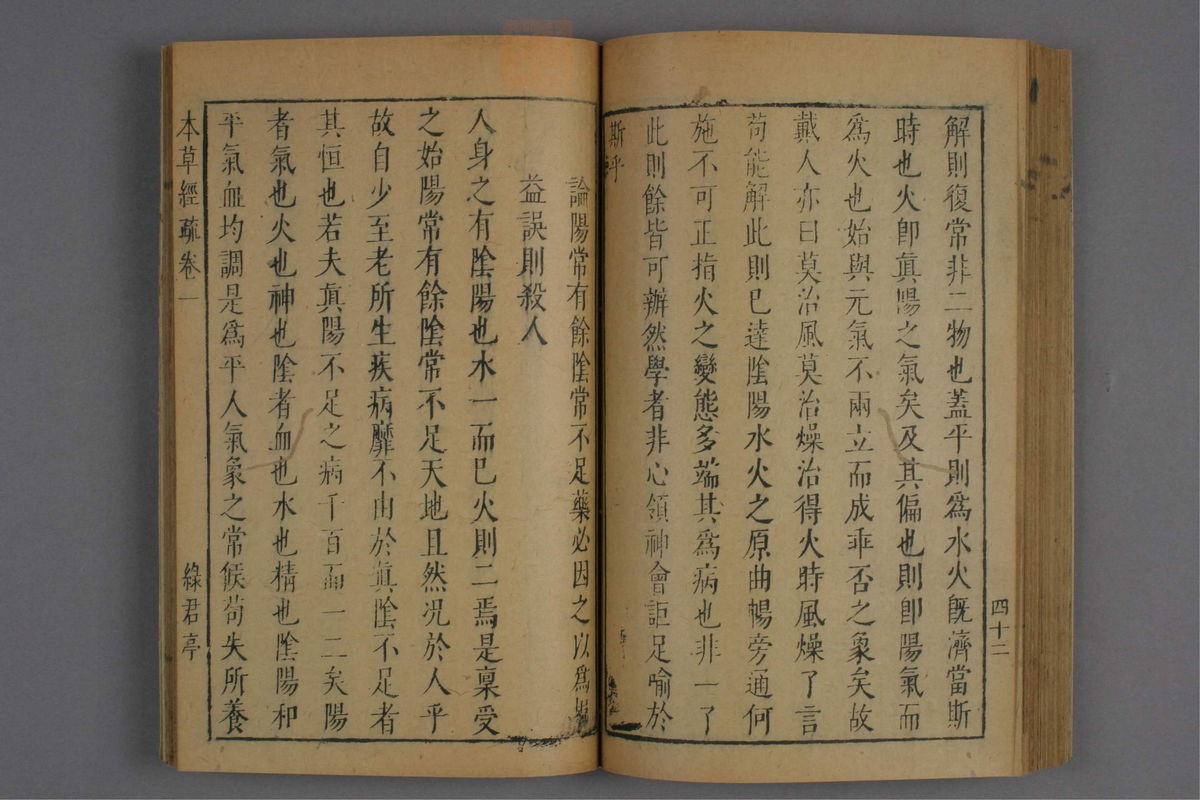 四十二
解則復常非二物也蓋平則爲水火旣濟當斯
時也火卽眞陽之氣矣及其偏也則卽陽氣而
爲火也始與元氣不兩立而成乖否之象矣故
戴人亦曰莫治風莫治燥治得火時風燥了言
苟能解此則已達隂陽水火之原曲暢旁通何
施不可正指火之變態多端其爲病也非一了
此則餘皆可辨然學者非心領神會詎足喻於
斯乎
論陽常有餘隂常不足藥必因之以爲損
益誤則殺人
人身之有隂陽也水一而已火則二焉是稟受
之始陽常有餘隂常不足天地且然况於人乎
故自少至老所生疾病靡不由於眞隂不足者
其恒也若夫眞陽不足之病千百而一二矣陽
者氣也火也神也隂者血也水也精也隂陽和
平氣血均調是爲平人氣象之常候苟失所養
本草經疏卷一
綠君亭